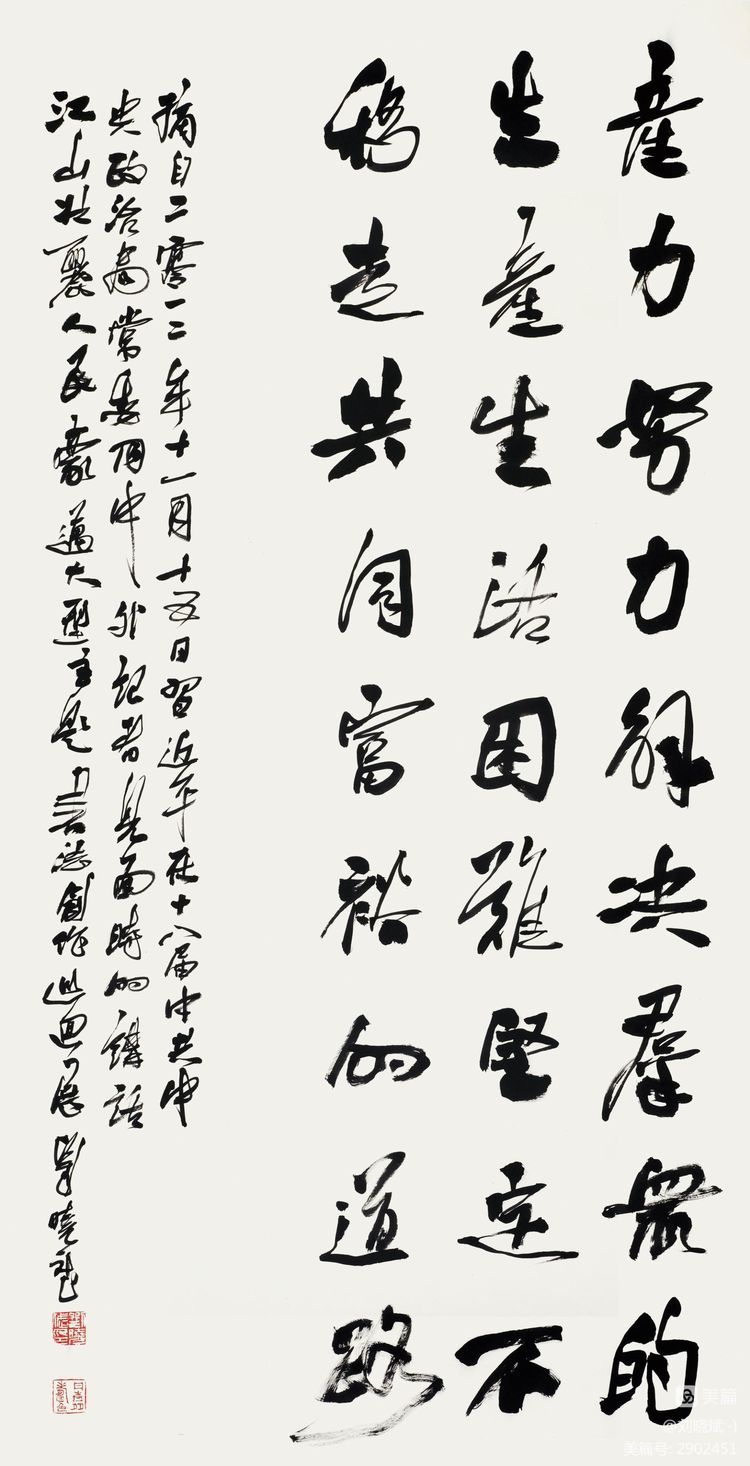 產力努力解决羣眾的
生產生活困難堅定不
移走共同富裕的道路
摘自二零一二年十一月十五日習近平在十八届中共中
央政治局常委同中外記者見面時的講話
江山壯麗人民豪邁大型主題書法創作巡回展 劉曉斌
美篇
@刘晓斌:-)
美篇号: 2902451